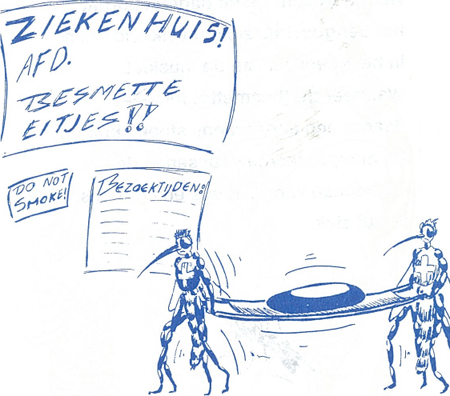 ZIEKENHUIS!
AFD.
BESMETTE
EITJES!!
DO NOT
SMOKE!
BEZOEKTIJDEN: